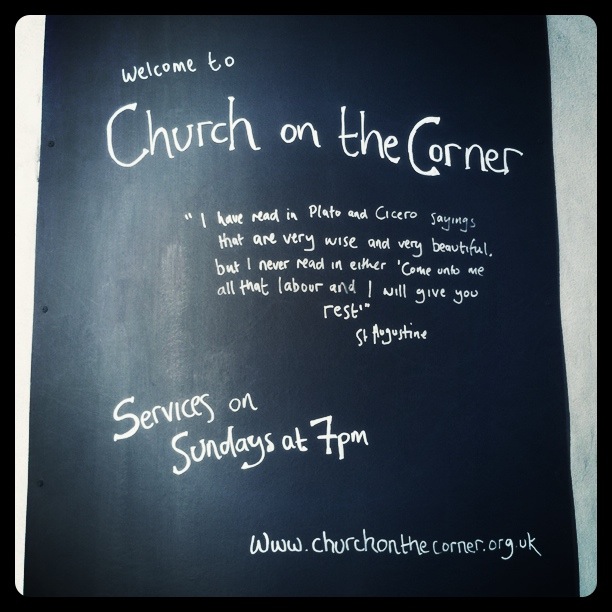 Welcome to
Church on the Corner
"I have read in Plato and Cicero sayings
that are very wise and very beautiful.
but I never read in either 'Come unto me
all that labour and I will give you
rest'"
St Augustine
Services on
Sundays at 7pm
www.churchonthecorner.org.uk